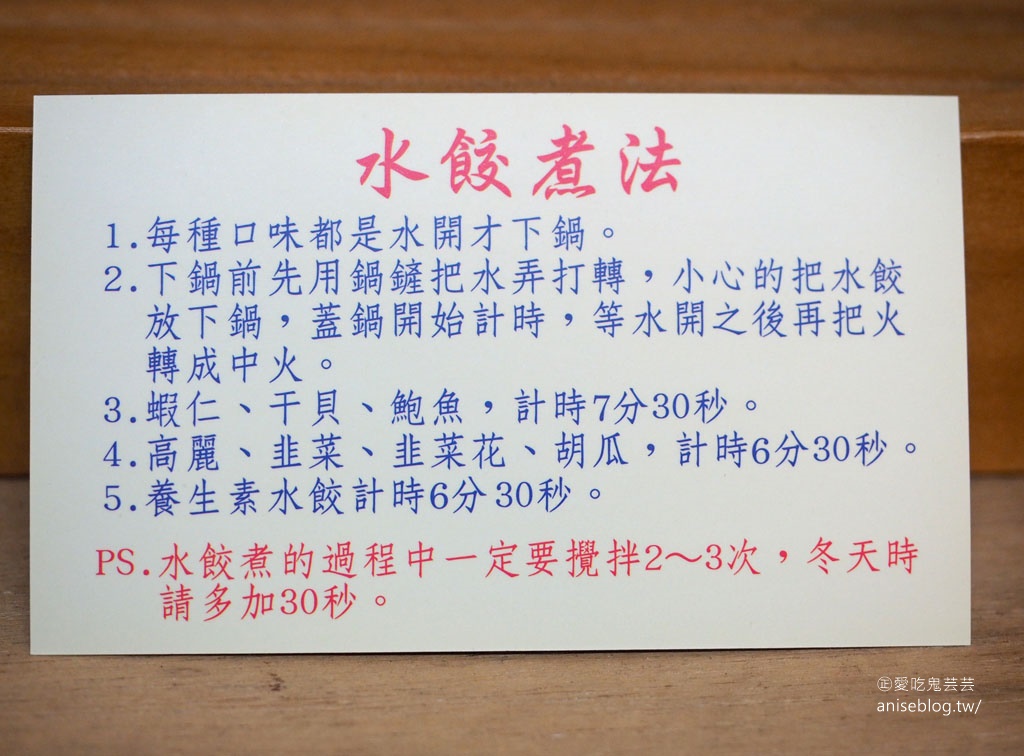 水餃煮法
1.每種口味都是水開才下鍋。
2.下鍋前先用鍋鏟把水弄打轉，小心的把水餃
放下鍋，蓋鍋開始計時，等水開之後再把火
轉成中火。
3.蝦仁、干貝、鮑魚，計時7分30秒。
4.高麗、韭菜、韭菜花、胡瓜，計時6分30秒。
5.養生素水餃計時6分30秒。
PS.水餃煮的過程中一定要攪拌2～3次，冬天時
請多加30秒。
㊣愛吃鬼芸芸
aniseblog.tw/